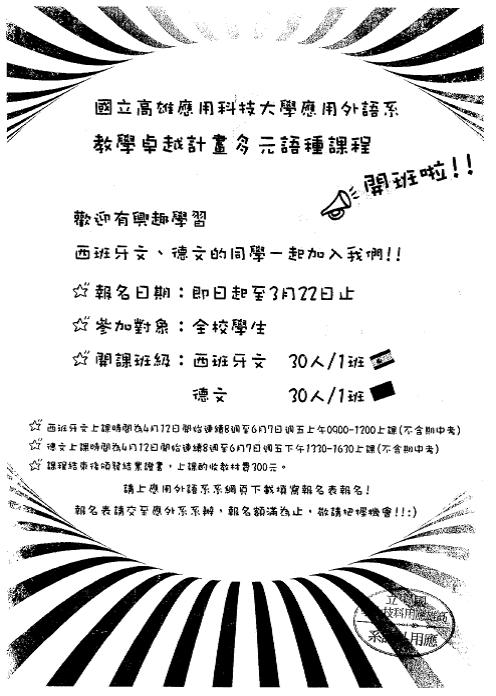 國立高雄應用科技大學應用外語系
教學卓越計畫多元語種課程
開班啦!!
歡迎有興趣學習
西班牙文、德文的同學一起加入我們!!
報名日期：即日起至3月22日止
參加對象：全校學生
開課班級：西班牙文 30人/1班
德文 30人/1班
西班牙文上課時間為4月12日開始連續8週至6月7日週五上午0900-1200上課(不含期中考)
德文上課時間為4月12日開始連續8週至6月7日週五下午1330-1630上課(不含期中考)
課程結束後頒發結業證書，上課酌收教材費300元。
請上應用外語系系網頁下載填寫報名表報名!
報名表請交至應外系系辦，報名額滿為止，敬請把握機會!!:)